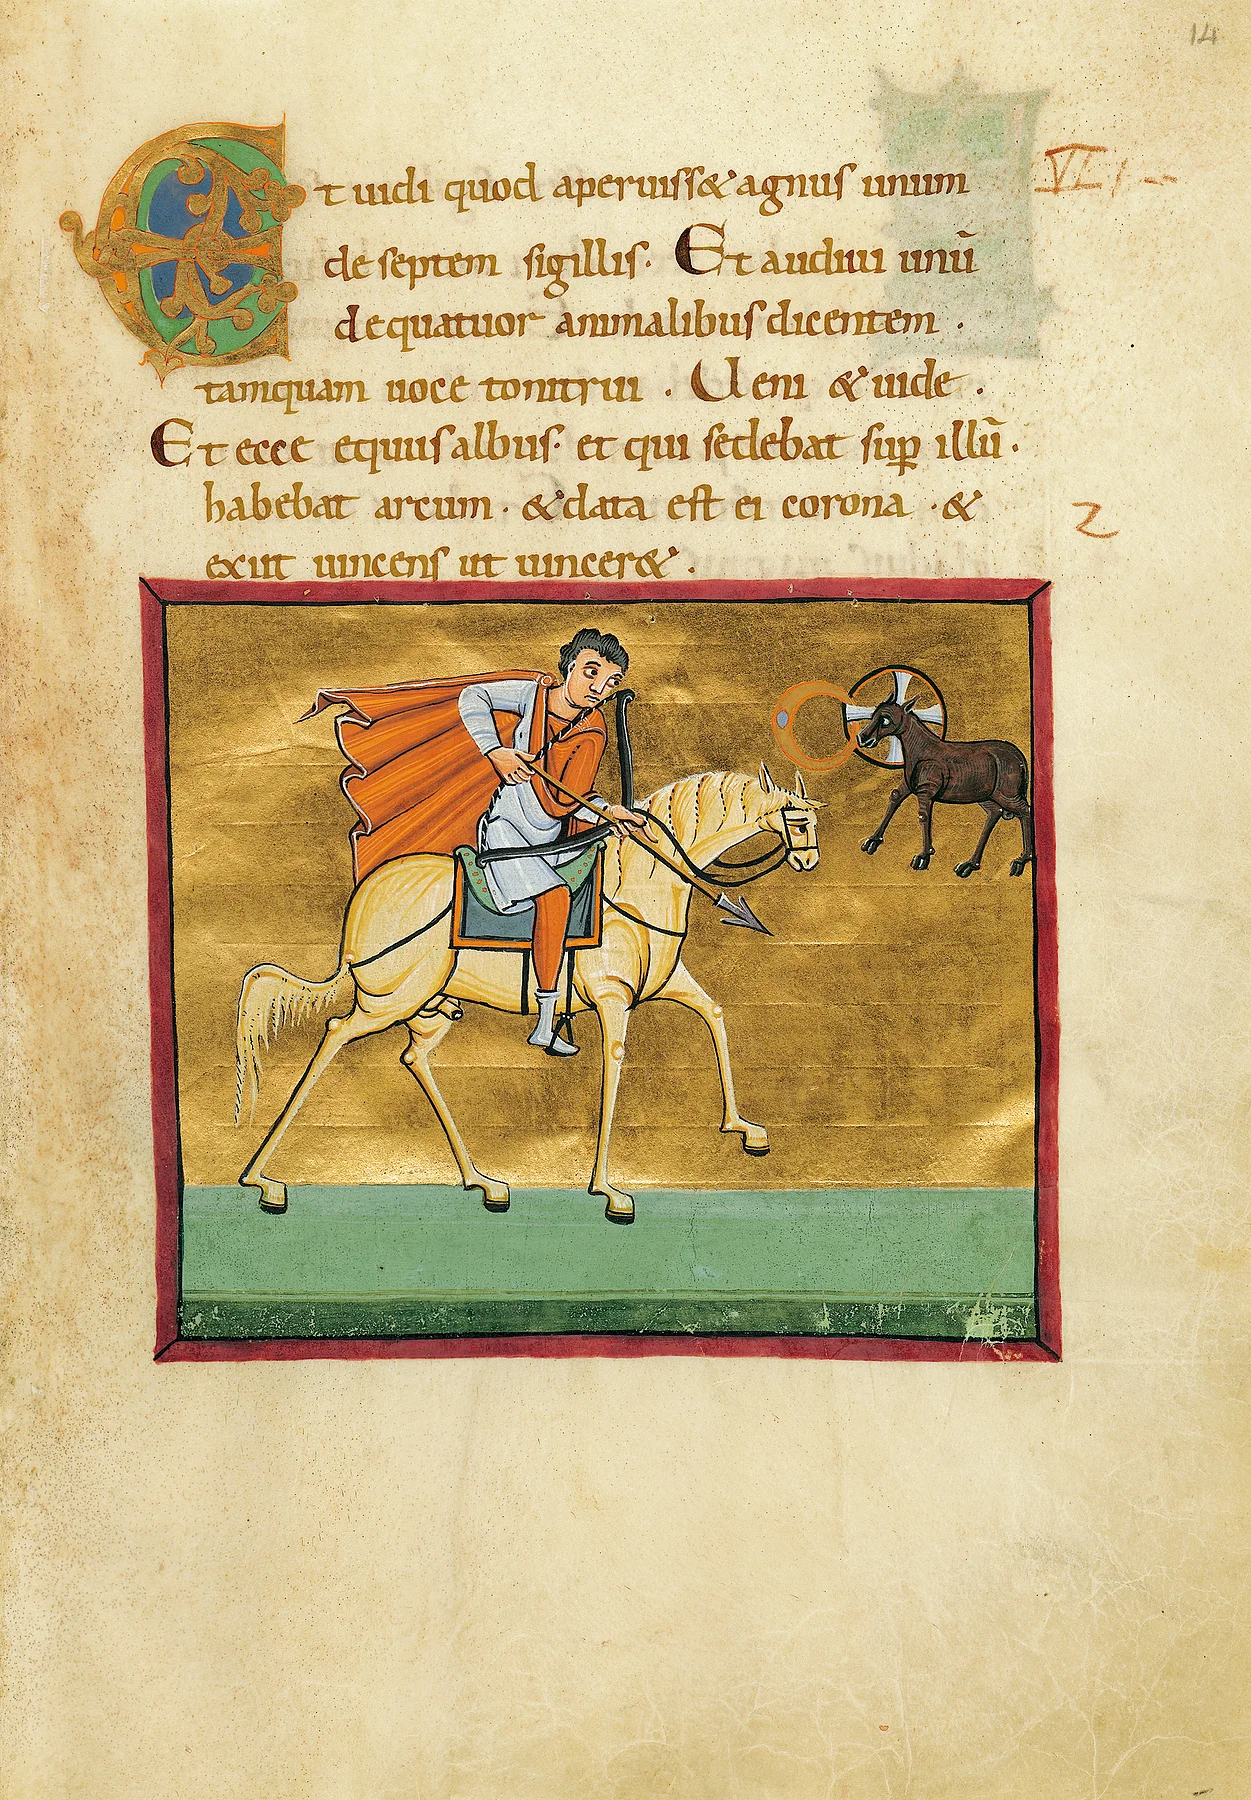 14
Et uidi quod aperuiss& agnus unum
VI
de septem sigillis. Et audiui unū
de quatuor animalibus dicentem .
tamquam uoce tonitrui . Ueni & uide .
Et ecce equus albus. et qui sedebat sup illū .
habebat arcum . & data est ei corona . &
2
exiit uincens ut uincer& .